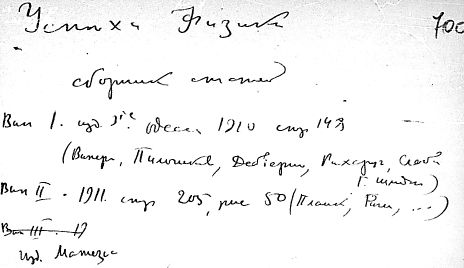 Успехи Физики 700
сборник статей
Вып I. изд 3ье одесса 1910 стр 148
(Винер, Пильчиков, Рихарц, Слаби
Вып II. 1911. стр 205, рис 50 (Планк, Риги, ...)
Вып III. 19
изд. Матезис